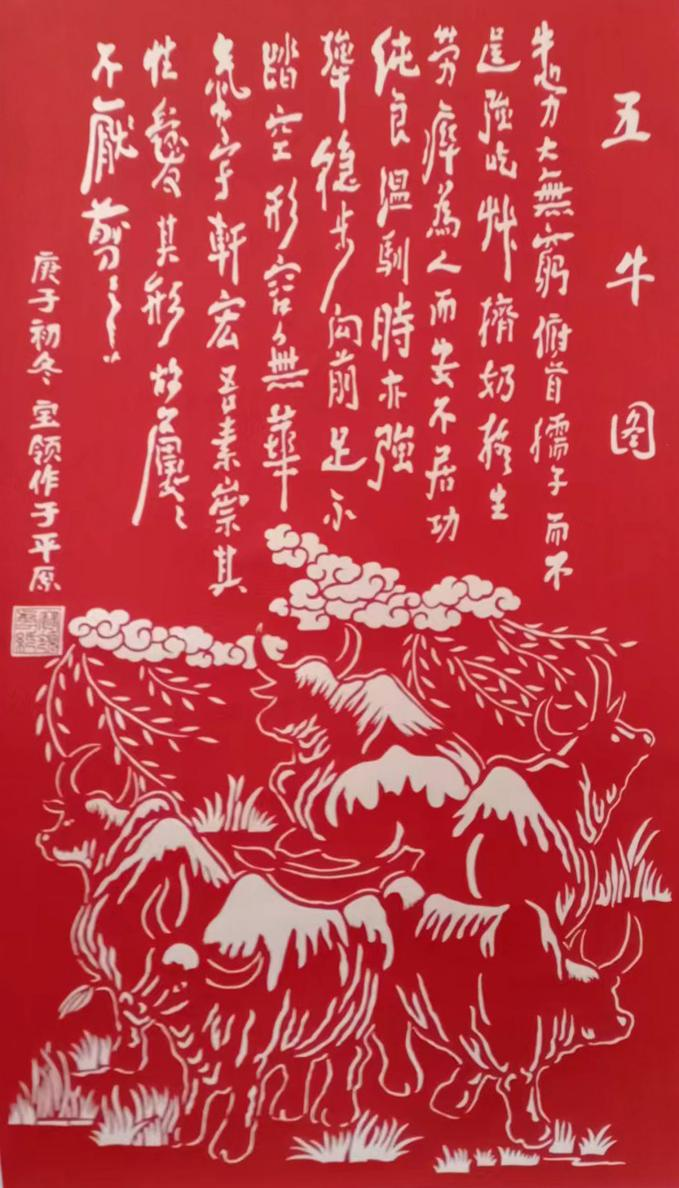 五牛图
牛力大無窮俯首孺子而不
逞強吃艸擠奶終生
劳瘁為人而安不居功
纯良温馴時亦強
犟稳步向前足不
踏空形容無華
氣宇軒宏吾素崇其
性愛其形故屡〻
不厭剪〻
庚子初冬 宝领作于平原